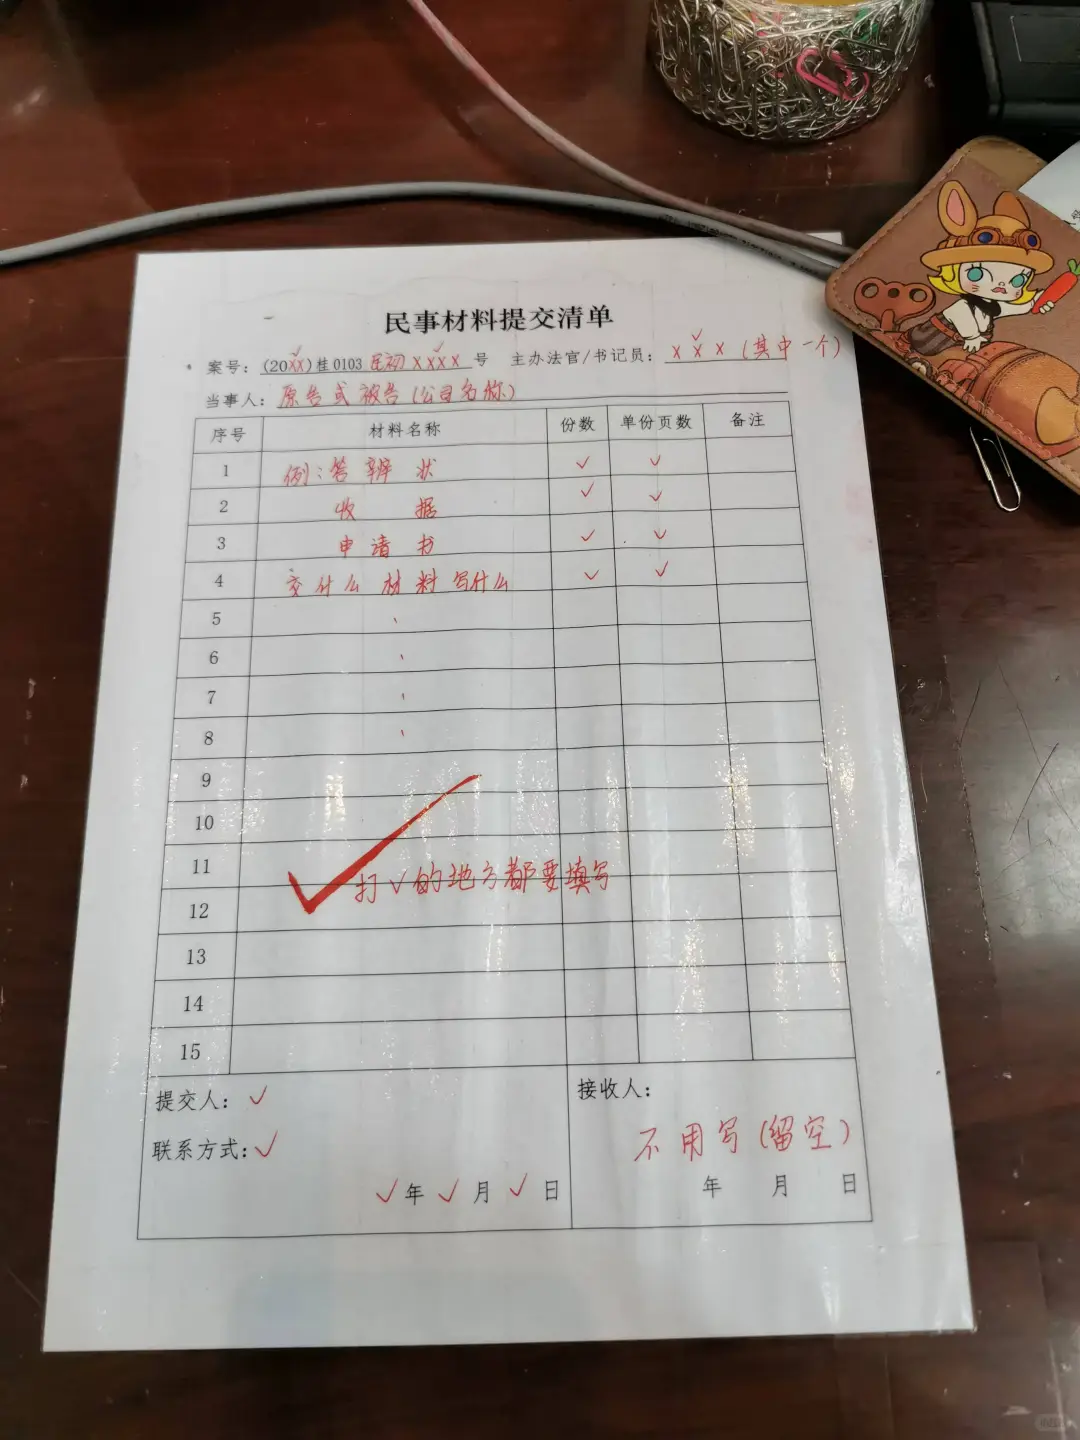 民事材料提交清单
案号：(20XX)桂0103民初XXXX号 主办法官/书记员：XXX(其中一个)
当事人：原告或被告(公司名称)
序号 材料名称 份数 单份页数 备注
1 例：答辩状 ✓ ✓
2 收据 ✓ ✓
3 申请书 ✓ ✓
4 交什么材料写什么 ✓ ✓
5
6
7
8
9
10
11
打✓的地方都要填写
12
13
14
15
提交人：✓
联系方式:✓
✓年✓月✓日
接收人：
不用写(留空)
年 月 日